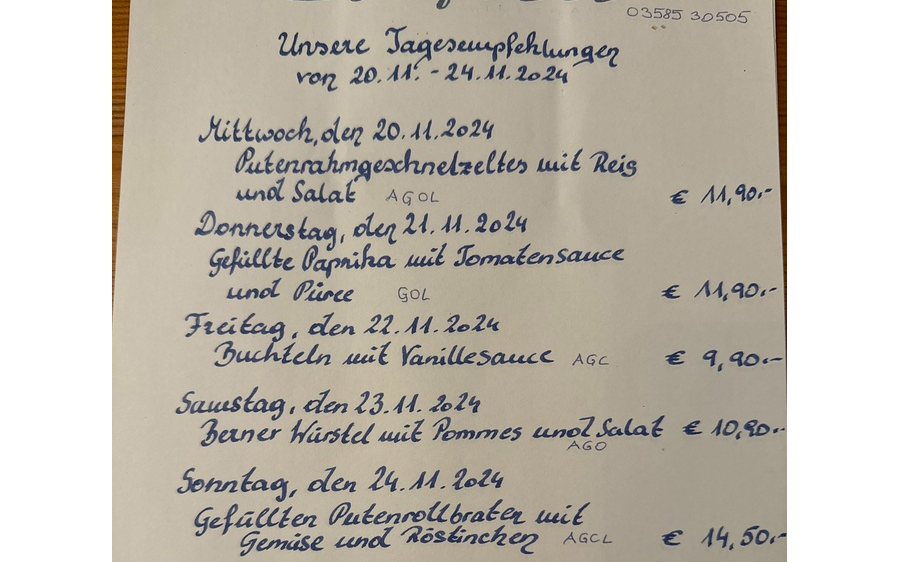 03585 30505
Unsere Tagesempfehlungen
von 20.11. - 24.11.2024
Mittwoch, den 20.11.2024
Putenrahmgeschnetzeltes mit Reis
und Salat AGOL € 11,90.-
Donnerstag, den 21.11.2024
Gefüllte Paprika mit Tomatensauce
und Püree GOL € 11,90.-
Freitag, den 22.11.2024
Buchteln mit Vanillesauce AGC € 9,90.-
Samstag, den 23.11.2024
Berner Würstel mit Pommes und Salat € 10,90.-
AGO
Sonntag, den 24.11.2024
Gefüllten Putenrollbraten mit
Gemüse und Röstinchen AGCL € 14,50.-